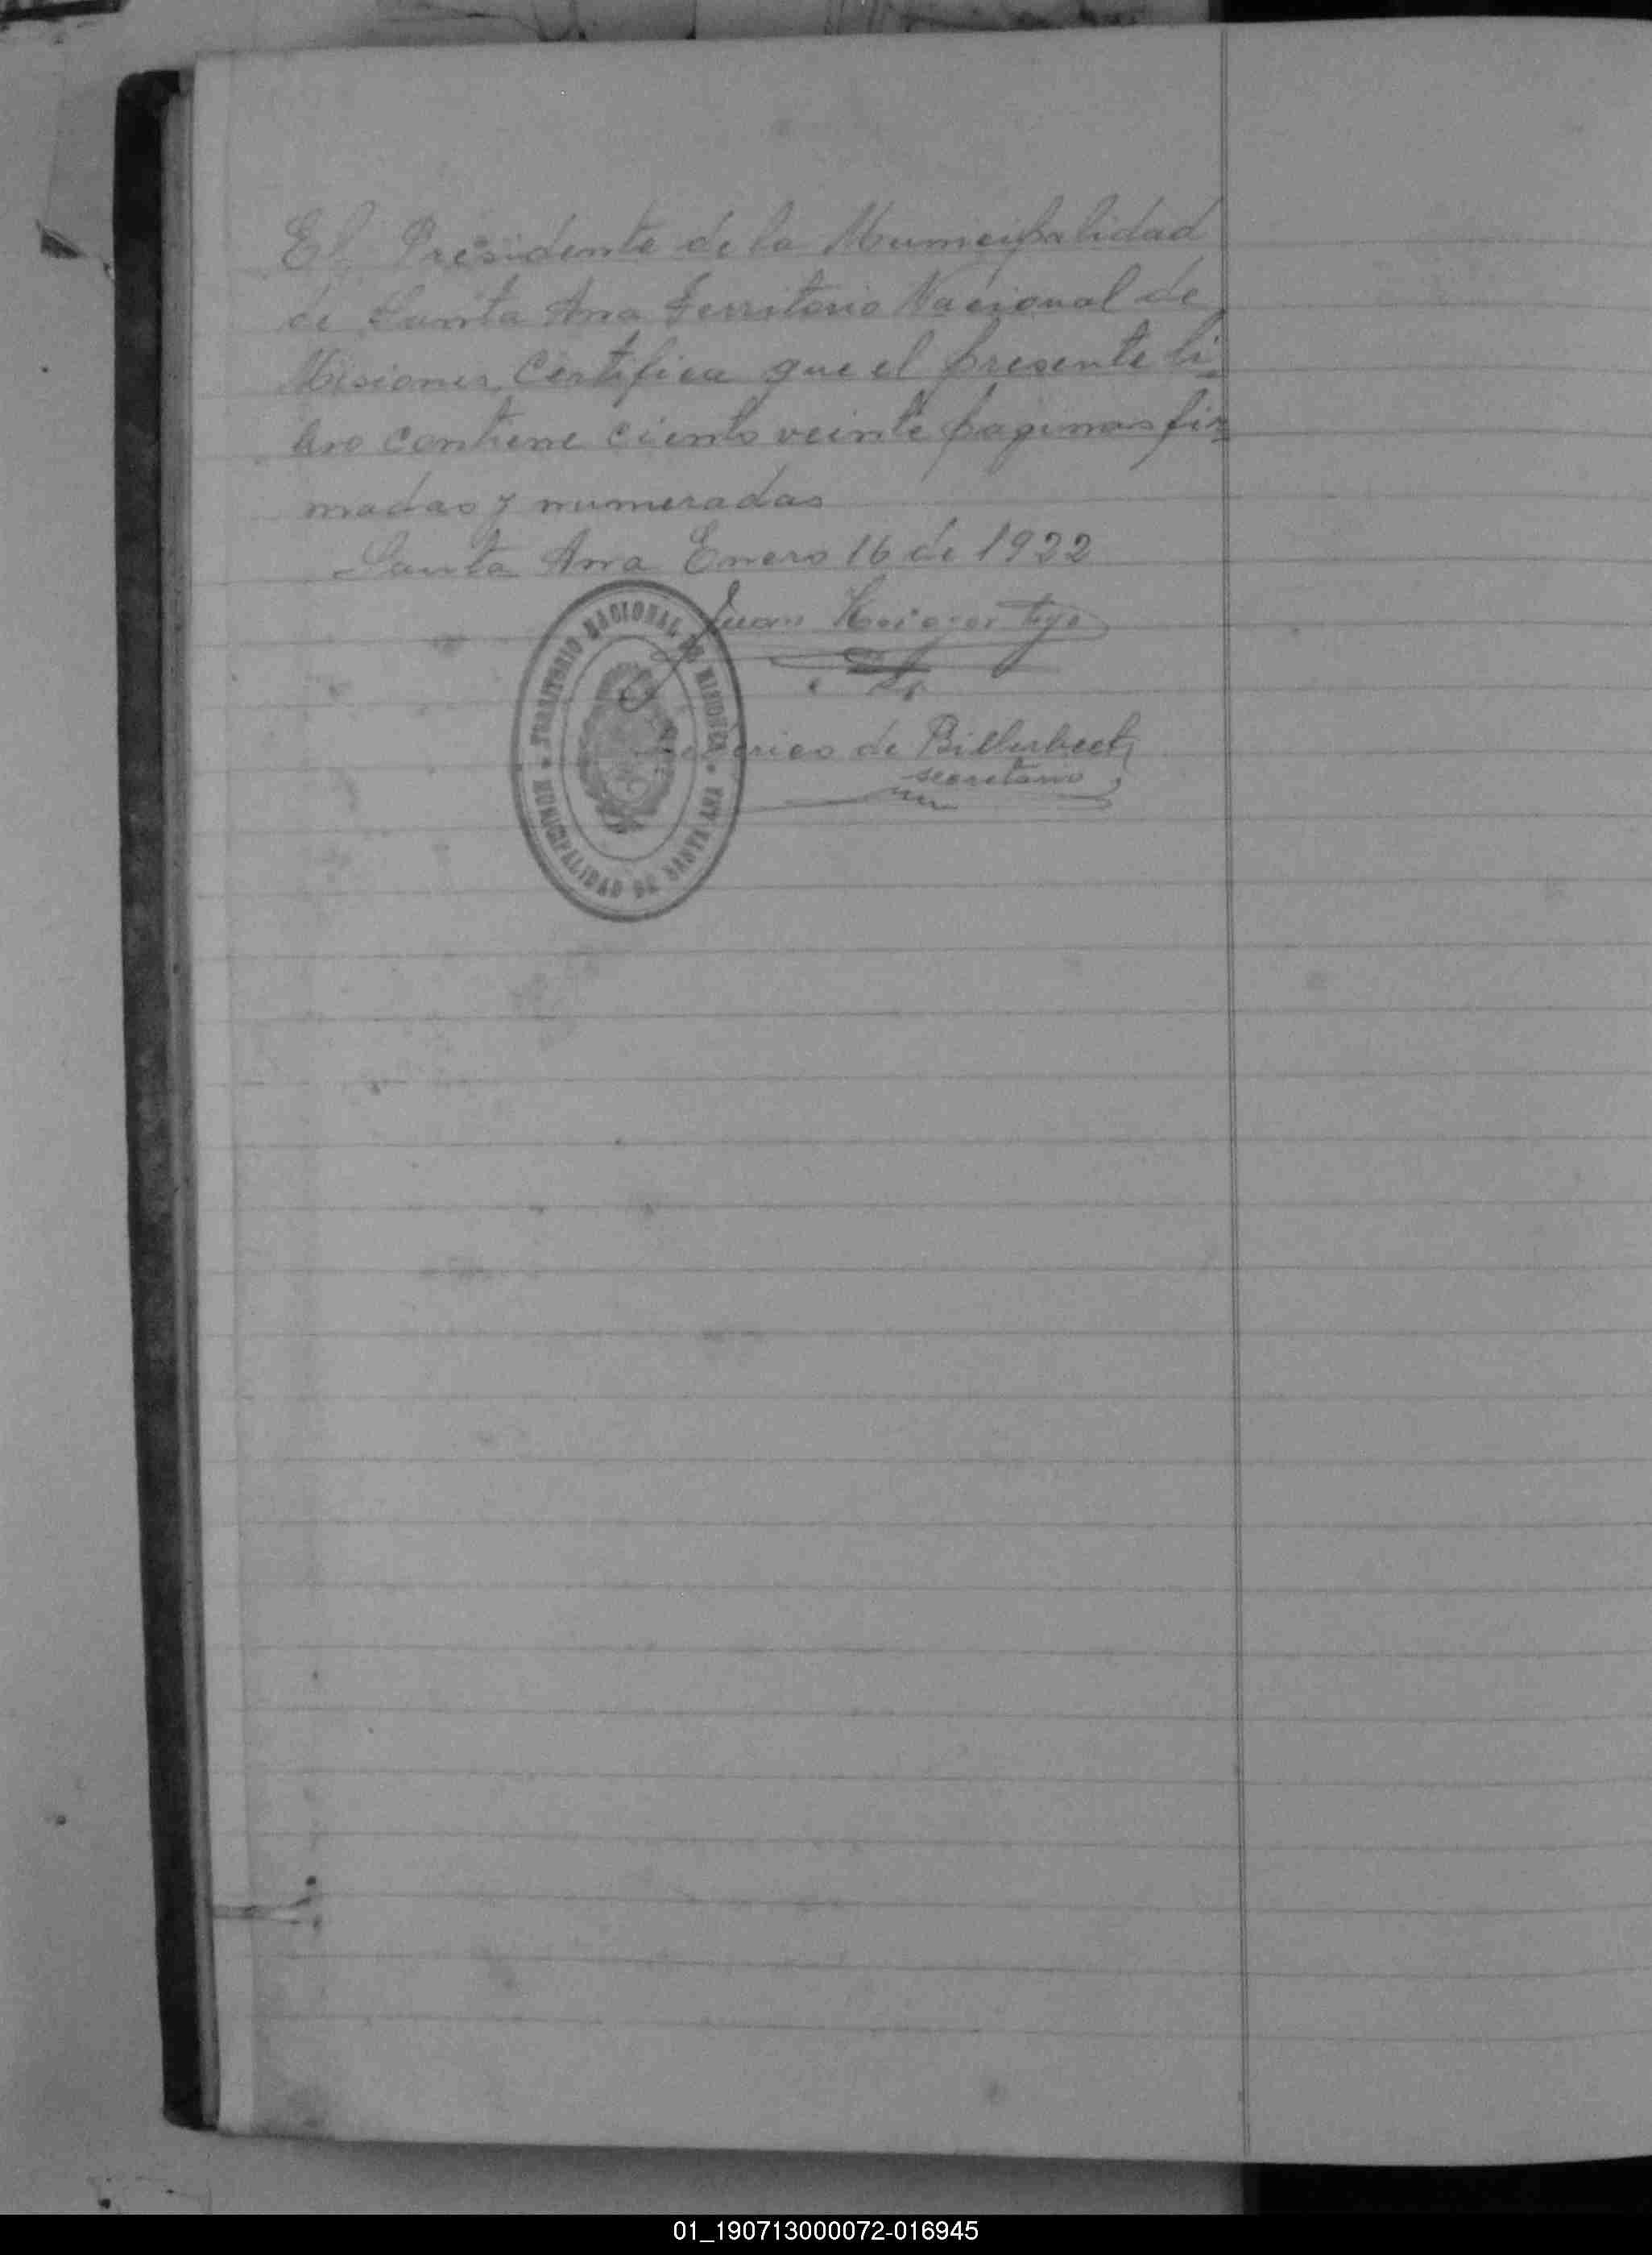 El Presidente de la Municipalidad
de Santa Ana Territorio Nacional de
Misiones, Certifica que el presente li-
bro contiene ciento veinte paginas fir-
madas y numeradas
Santa Ana Enero 16 de 1922
Juan
Federico de Billerbeck
secretario
TERRITORIO NACIONAL DE MISIONES
MUNICIPALIDAD DE SANTA ANA
01_190713000072-016945